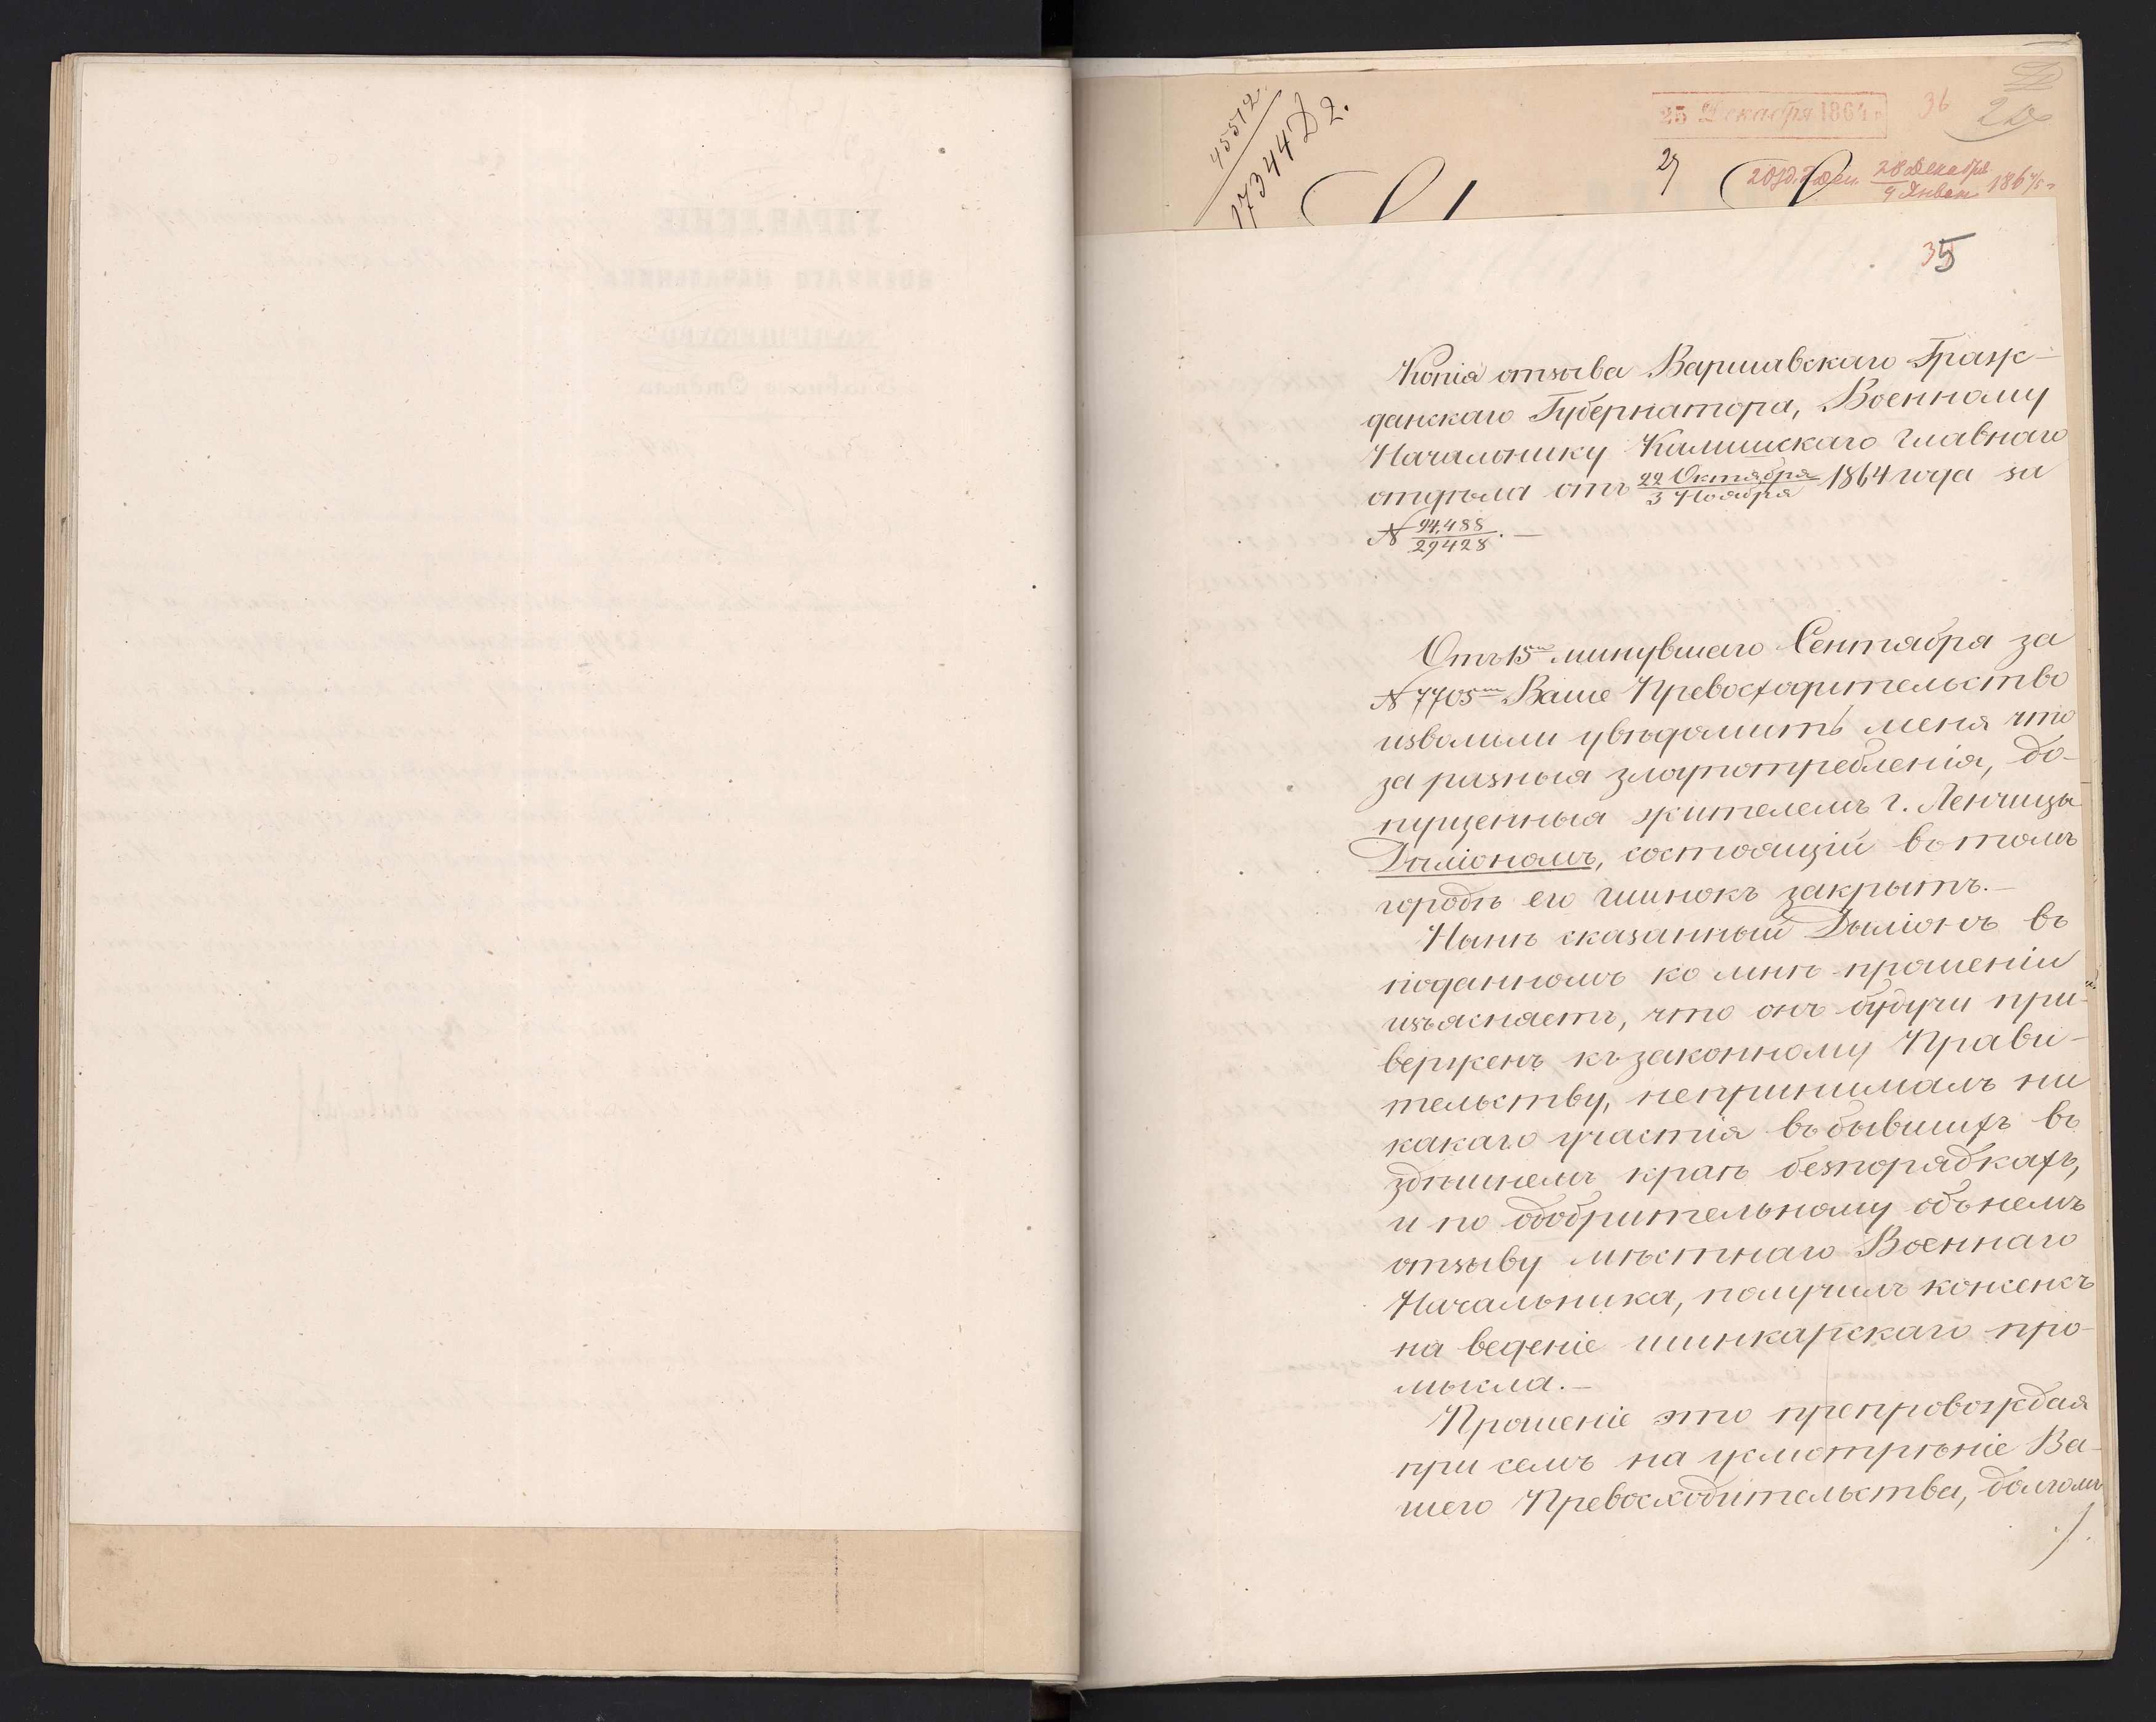 45512
17344 Д 2.
25 Декабря 1864 г
36
29
28 Декабря
9 Январ 1864/5 г
35
Копія отзыва Варшавскаго Граж-
данскаго Губернатора, Военному
Начальнику Калишскаго главнаго
отдѣла отъ 22 Октября/3 Ноября 1864 года за
N 94.488/29428. —
Отъ 15го минувшаго Сентября за
N 7705m Ваше Превосходительство
изволили увѣдомить меня что
за разныя злоупотребленія, до-
пущенныя жителемъ г. Ленчицы
Дыліономъ, состоящій въ томъ
городѣ его шинокъ закрытъ. —
Нынѣ сказанный Дыліонъ въ
поданномъ ко мнѣ прошеніи
изъясняетъ, что онъ будучи при-
верженъ къ законному Прави-
тельству, непринималъ ни
какаго участія въ бывшихъ въ
здѣшнемъ краѣ безпорядкахъ,
и по одобрительному объ немъ
отзыву мѣстнаго Военнаго
Начальника, получилъ консенсъ
на веденіе шинкарскаго про-
мысла. —
Прошеніе это препровождая
при семъ на усмотрѣніе Ва-
шего Превосходительства, долгомъ
./.